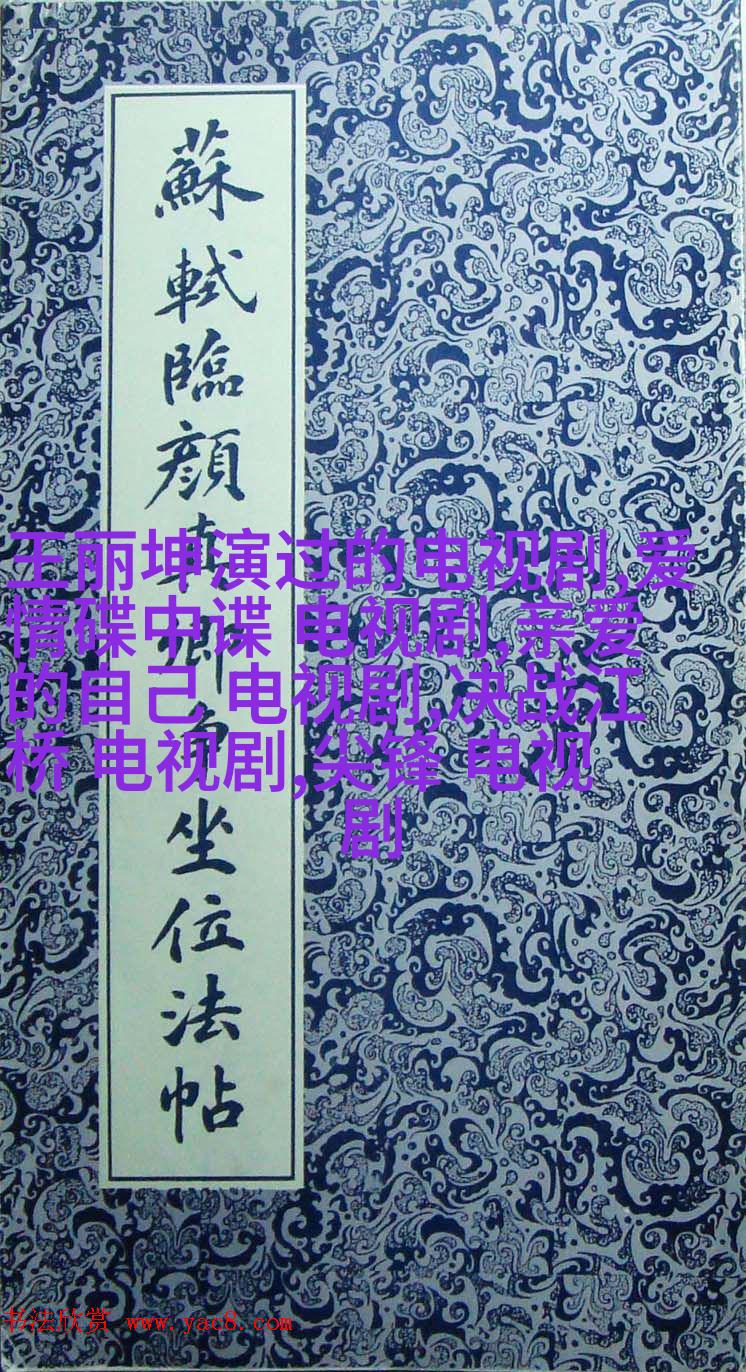 蘇軾臨顔真卿争坐位法帖
王丽坤演过的电视剧,爱
情碟中谍 电视剧,亲爱
的自己 电视剧,决战江
桥 电视剧,尖锋 电视
剧
书法欣赏 www.yac8.com